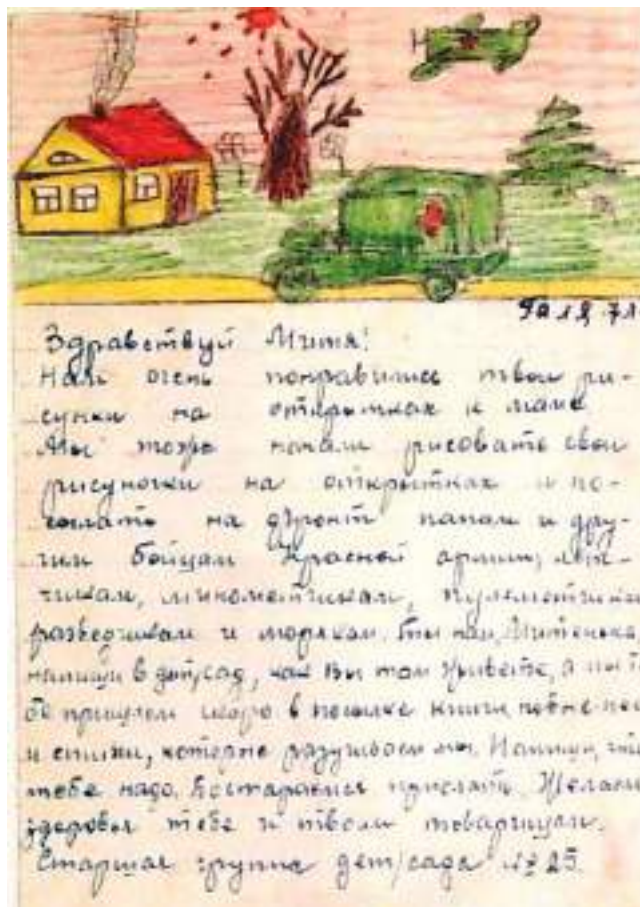 Галя 7 л
Здравствуй Митя!
Нам очень понравились твои ри-
сунки на открытках к маме
Мы тоже начали рисовать свои
рисуночки на открытках и по-
сылать на фронт папам и дру-
гим бойцам Красной армии, лёт-
чикам, миномётчикам, пулемётчикам
разведчикам и морякам. Ты нам, Митенька
напиши в дет/сад, как Вы там живёте, а мы те
бе пришлём скоро в посылке книги, новые
и стихи, которые разучиваем мы. Напиши, что
тебе надо. Постараемся прислать. Желаем
здоровья тебе и твоим товарищам.
Старшая группа дет/сада № 25.